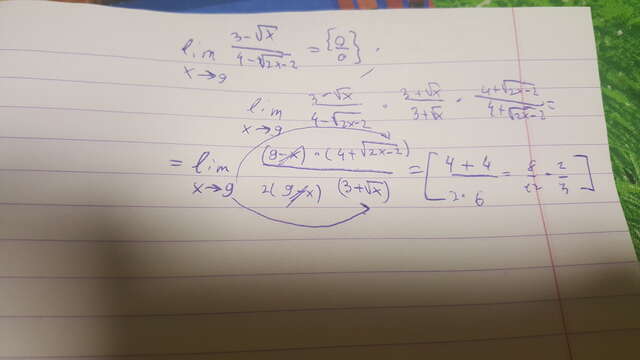 lim x→9 (3-√x)/(4-√2x-2) = {0/0}.
lim x→9 (3-√x)/(4-√2x-2) · (3+√x)/(3+√x) · (4+√2x-2)/(4+√2x-2) =
= lim x→9 (9-x)·(4+√2x-2) / 2(9-x)(3+√x) = [(4+4)/(2·6) = 8/12 = 2/3]